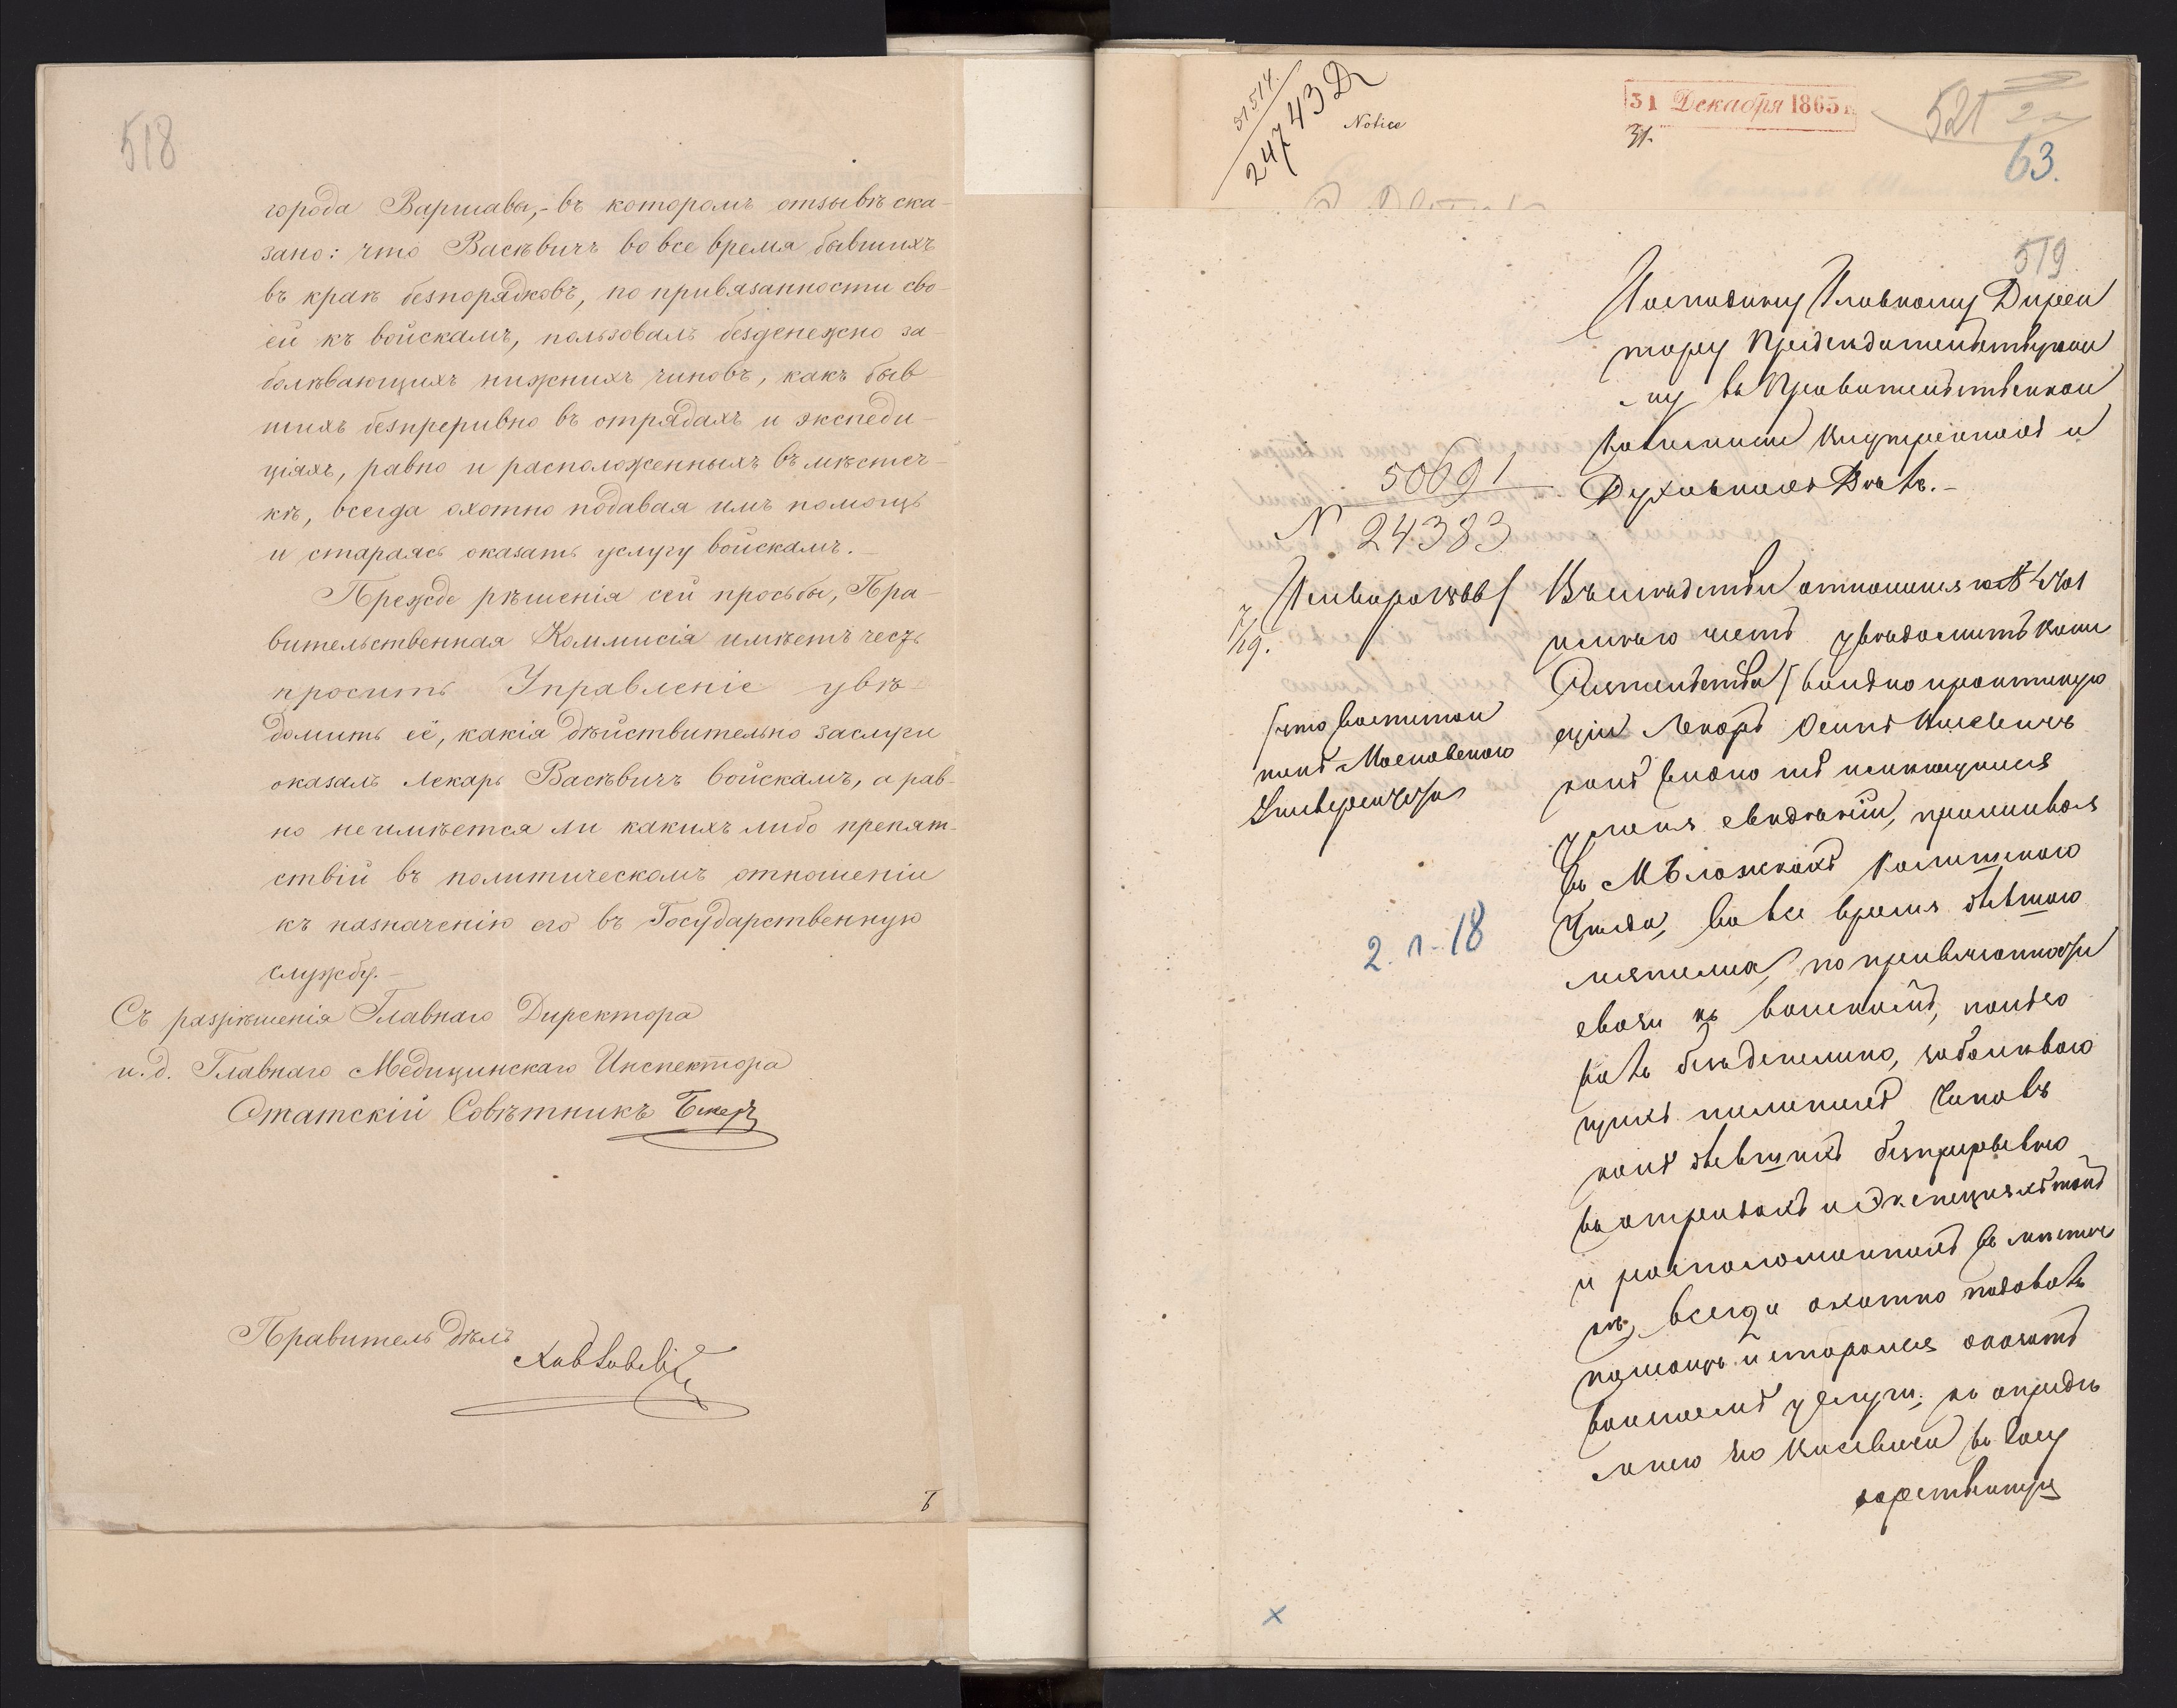 518
города Варшавы,- въ которомъ отзывѣ ска-
зано: что Васѣвичъ во все время бывшихъ
въ краѣ безпорядковъ, по привязанности сво-
ей къ войскамъ, пользовалъ безденежно за-
болѣвающихъ нижнихъ чиновъ, какъ быв-
шихъ безпрерывно въ отрядахъ и экспеди-
ціяхъ, равно и расположенныхъ въ мѣстеч-
кѣ, всегда охотно подавая имъ помощь
и стараясь оказать услугу войскамъ.-
Прежде рѣшенія сей просьбы, Пра-
вительственная Коммисія имѣетъ честь
просить Управленіе увѣ-
домить её, какія дѣйствительно заслуги
оказалъ лекарь Васѣвичъ войскамъ, а рав-
но не имѣется ли какихъ либо препят-
ствій въ политическомъ отношеніи
къ назначенію его въ Государственную
службу.-
Съ разрѣшенія Главнаго Директора
и. д. Главнаго Медицинскаго Инспектора
Статскій Совѣтникъ
Правитель дѣлъ
51514.
24743
Notice
31 Декабря 1865 г.
31.
521
63.
519
Господину Главному Дирек
тору Предсѣдательствующе
му въ Правительственной
Комиссіи Внутреннихъ и
Духовныхъ Дѣлъ.-
50691
N 24383
7/19. Генваря 1866
Въ слѣдствіи отношенія за №
имѣю честь увѣдомить
вольно практикую
щій Лекарь Осипъ Васѣвичъ
какъ видно изъ имѣющихся
свѣдѣній, проживая
что воспитан
никъ Московскаго
Университета
въ Калишскаго
Уѣзда, во все время бывшаго
мятежа, по привязанности
2. 1. 18
своей къ войскамъ, пользо
валъ безденежно, заболѣваю
щихъ нижнихъ чиновъ
какъ бывшихъ безпрерывно
въ отрядахъ и
и расположенныхъ въ мѣстеч
кѣ, всегда охотно подавалъ
помощь и старался оказать
войскамъ услуги; къ опредѣ
ленію же Васѣвича въ Госу
дарственную